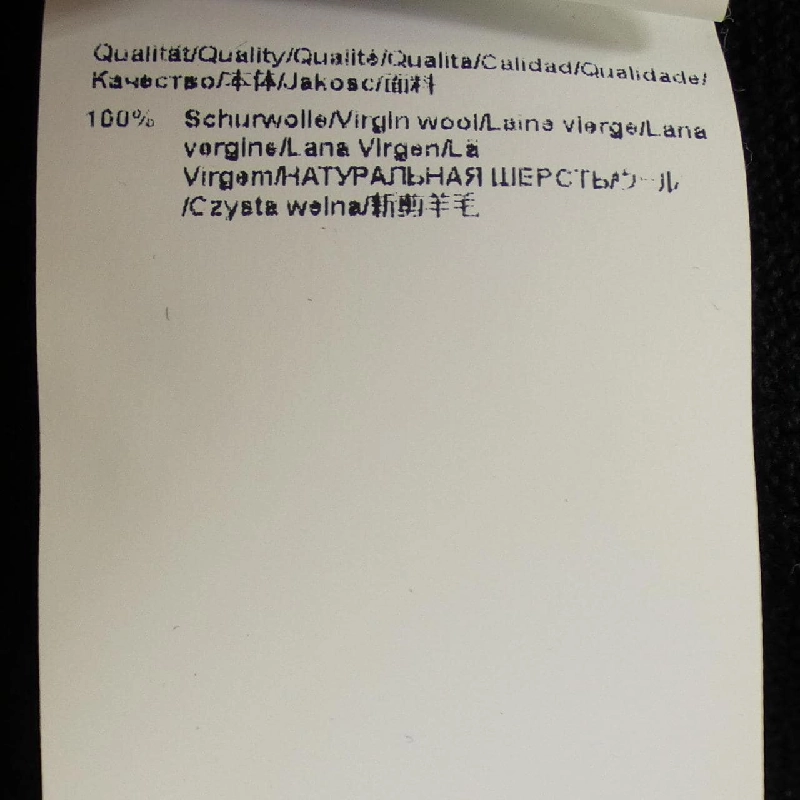 Qualität/Quality/Qualité/Qualità/Calidad/Qualidade/
Качество/本体/Jakosc/面料
100% Schurwolle/Virgin wool/Laine vierge/Lana
vergine/Lana Virgen/Lã
Virgem/НАТУРАЛЬНАЯ ШЕРСТЬ/ウール
/Czysta welna/新剪羊毛